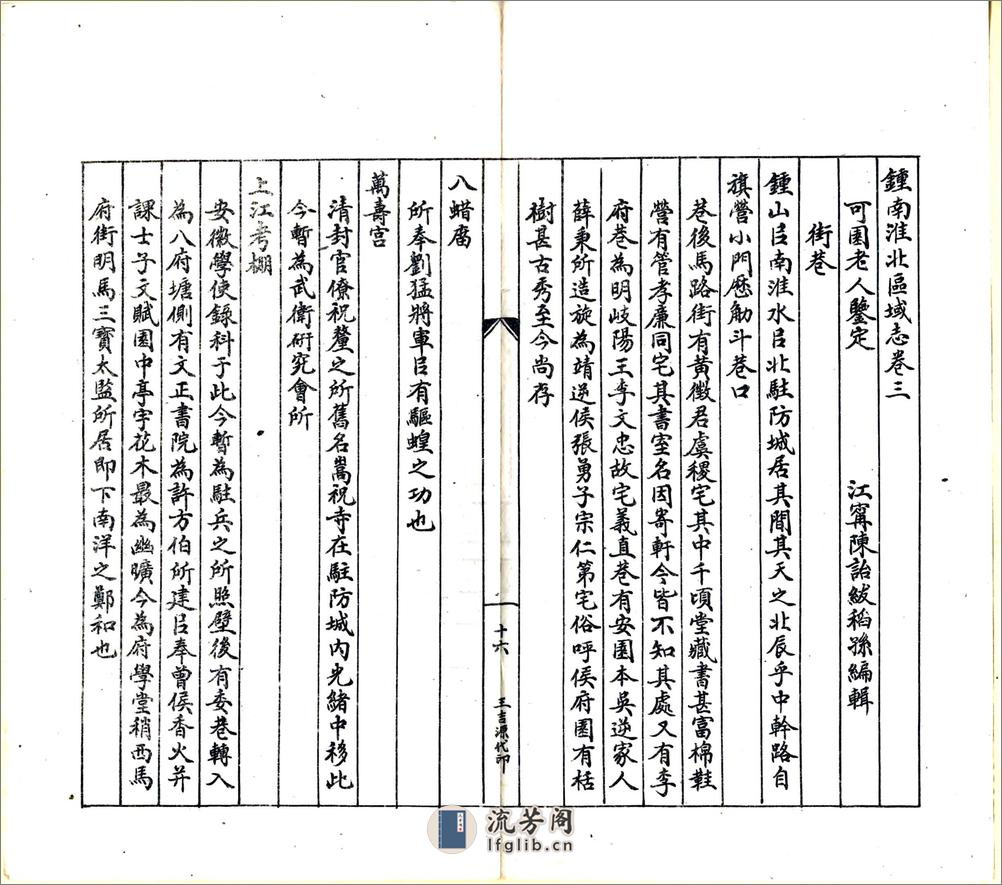 鍾南淮北區域志卷三
可園老人鑒定　江寗陳詒紱稻孫編輯
街巷
鍾山㠯南淮水㠯北駐防城居其間其天之北辰乎中幹路自
旗營小門歷觔斗巷口
巷後馬路街有黃徵君虞稷宅其中千頃堂藏書甚富棉鞋
營有管孝廉同宅其書室名因寄軒今皆不知其處又有李
府巷為明岐陽王李文忠故宅義直巷有安園本吳逆家人
薛秉所造旋為靖逆侯張勇子宗仁第宅俗呼侯府園有栝
樹甚古秀至今尚存
十六
王吉源代印
八蜡庿
所奉劉猛將軍㠯有驅蝗之功也
萬壽宮
清封官僚祝釐之所舊名嵩祝寺在駐防城內光緒中移此
今暫為武衛研究會所
上江考棚
安徽學使錄科于此今暫為駐兵之所照壁後有委巷轉入
為八府塘側有文正書院為許方伯所建㠯奉曾侯香火并
課士子文賦園中亭宇花木最為幽曠今為府學堂稍西馬
府街明馬三寶太監所居即下南洋之鄭和也
流芳阁
lfglib.cn